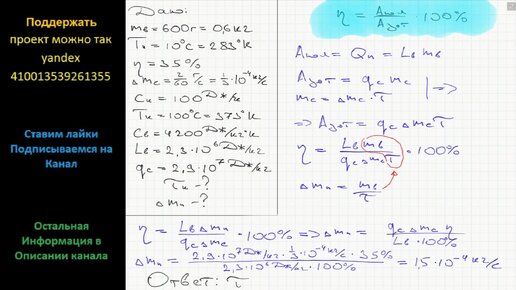 Поддержать
проект можно так
yandex
410013539261355
Ставим лайки
Подписываемся на
Канал
Остальная
Информация в
Описании канала
Дано:
mв = 600г = 0,6кг
Tн = 10°C = 283°K
η = 35%
Δmc = 2/60 г/с = 1/3·10⁻⁴ кг/с
Cк = 100 Дж/к
Tк = 100°C = 373°K
Cв = 4200 Дж/кг·к
Lв = 2,3·10⁶ Дж/кг
qc = 2,9·10⁷ Дж/кг
τк - ?
Δmп - ?
η = Aпол/Aзат · 100%
Aпол = Qп = Lв mв
Aзат = qc mc
mc = Δmc · τ
=>
=> Aзат = qc Δmc τ
η = Lв mв / qc Δmc τ · 100%
Δmп = mв/τ
η = Lв Δmп / qc Δmc · 100% => Δmп = qc Δmc η / Lв · 100%
Δmп = 2,9·10⁷ Дж/кг · 1/3·10⁻⁴ кг/с · 35% / 2,3·10⁶ Дж/кг · 100% = 1,5·10⁻⁴ кг/с
Ответ: τ